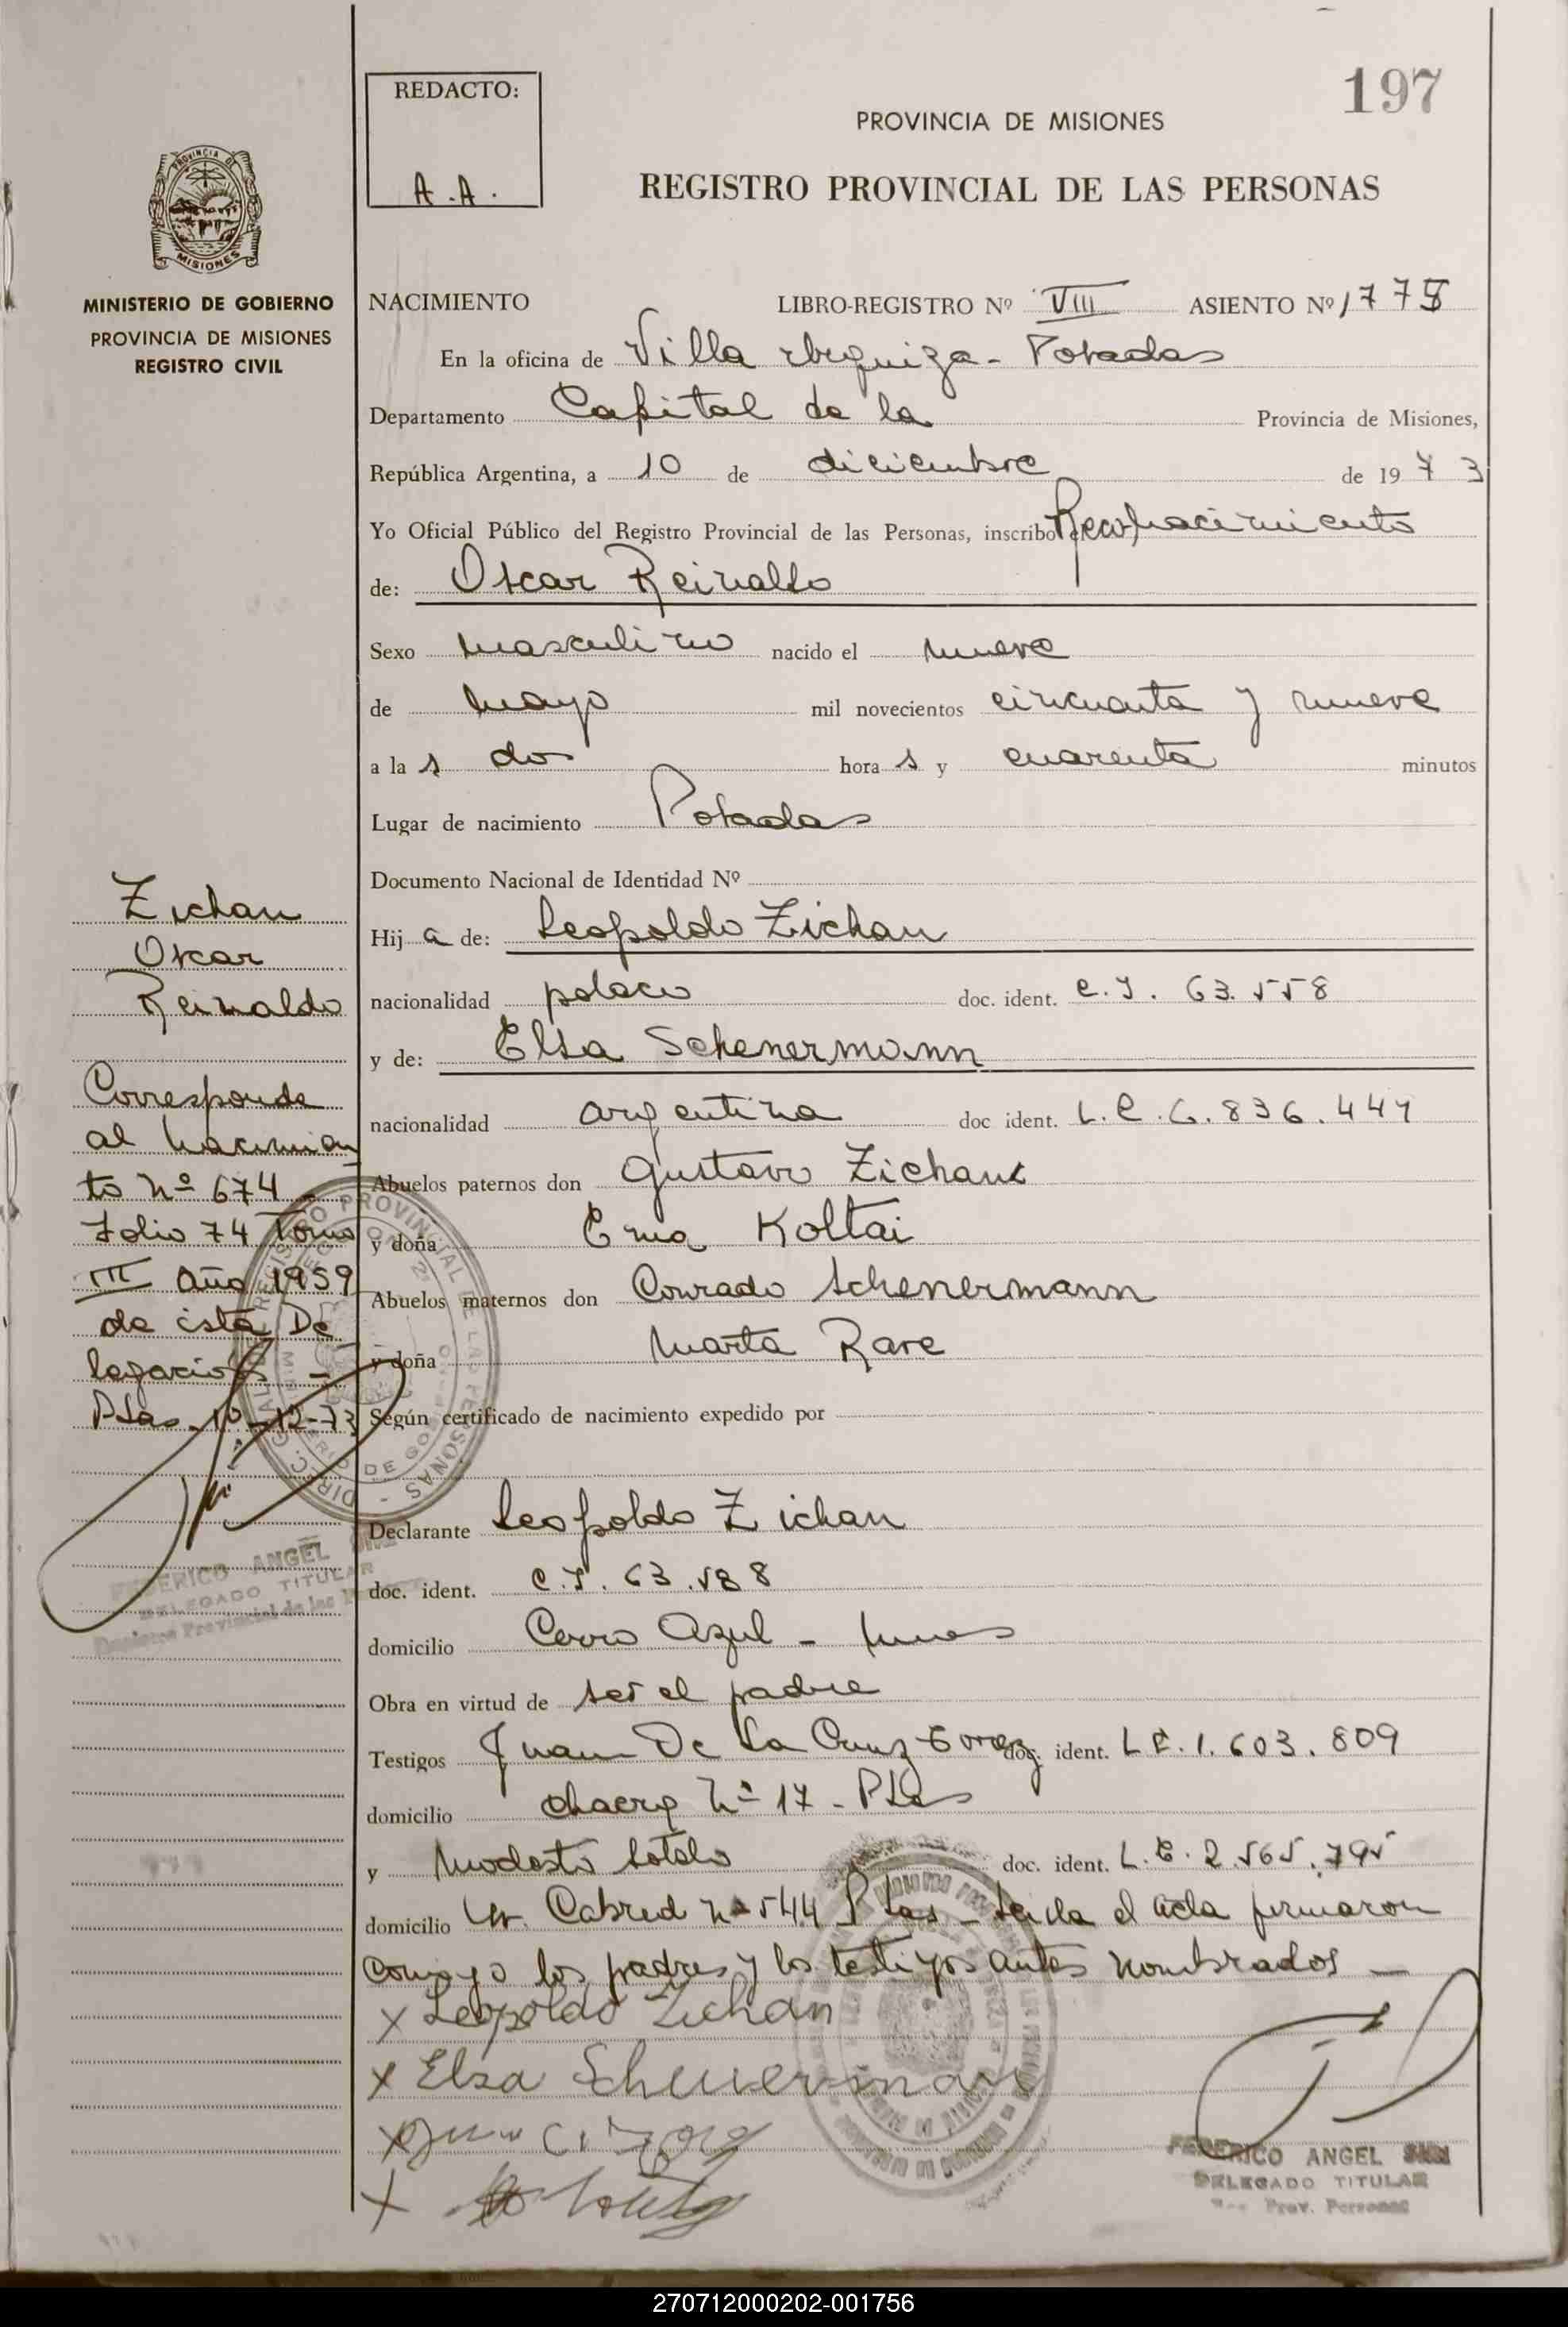 197
REDACTO:
A.A.
PROVINCIA DE MISIONES
REGISTRO PROVINCIAL DE LAS PERSONAS
MISIONES
MINISTERIO DE GOBIERNO
PROVINCIA DE MISIONES
REGISTRO CIVIL
NACIMIENTO LIBRO-REGISTRO Nº VIII ASIENTO Nº 1778
En la oficina de Villa Urquiza - Posadas
Departamento Capital de la Provincia de Misiones,
República Argentina, a 10 de diciembre de 1973
Yo Oficial Público del Registro Provincial de las Personas, inscribo
de: Oscar Reinaldo
Sexo masculino nacido el nueve
de mayo mil novecientos cincuenta y nueve
a las dos horas y cuarenta minutos
Lugar de nacimiento Posadas
Documento Nacional de Identidad Nº
Hija de: Leopoldo Zichan
nacionalidad polaco doc. ident. C.I. 63.558
y de: Elsa Schenermann
nacionalidad argentina doc ident. L.C. 6.836.441
Abuelos paternos don Gustavo Zichan
y doña Ema Koltai
Abuelos maternos don Conrado Schenermann
y doña Marta Rare
Según certificado de nacimiento expedido por
Declarante Leopoldo Zichan
doc. ident. C.I. 63.558
domicilio Cerro Azul - Mnes
Obra en virtud de ser el padre
Testigos Juan De La Cruz doc. ident. L.E. 1.603.809
domicilio chacra Nº 17 - Pdas
y Modesto Sotelo doc. ident. L.E. 2.565.795
domicilio Cabred Nº 544 Pdas - Leida el acta firmaron
conmigo los padres y los testigos antes nombrados -
x Leopoldo Zichan
x Elsa Scheuermann
x
x
FEDERICO ANGEL
DELEGADO TITULAR
Prov. Personas
Zichan
Oscar
Reinaldo
Corresponde
al nacimien
to Nº 674 -
Folio 74 Tomo
III Año 1959
de esta De
legación -
Pdas. 10-12-73
FEDERICO ANGEL
DELEGADO TITULAR
Registro Provincial de las
270712000202-001756